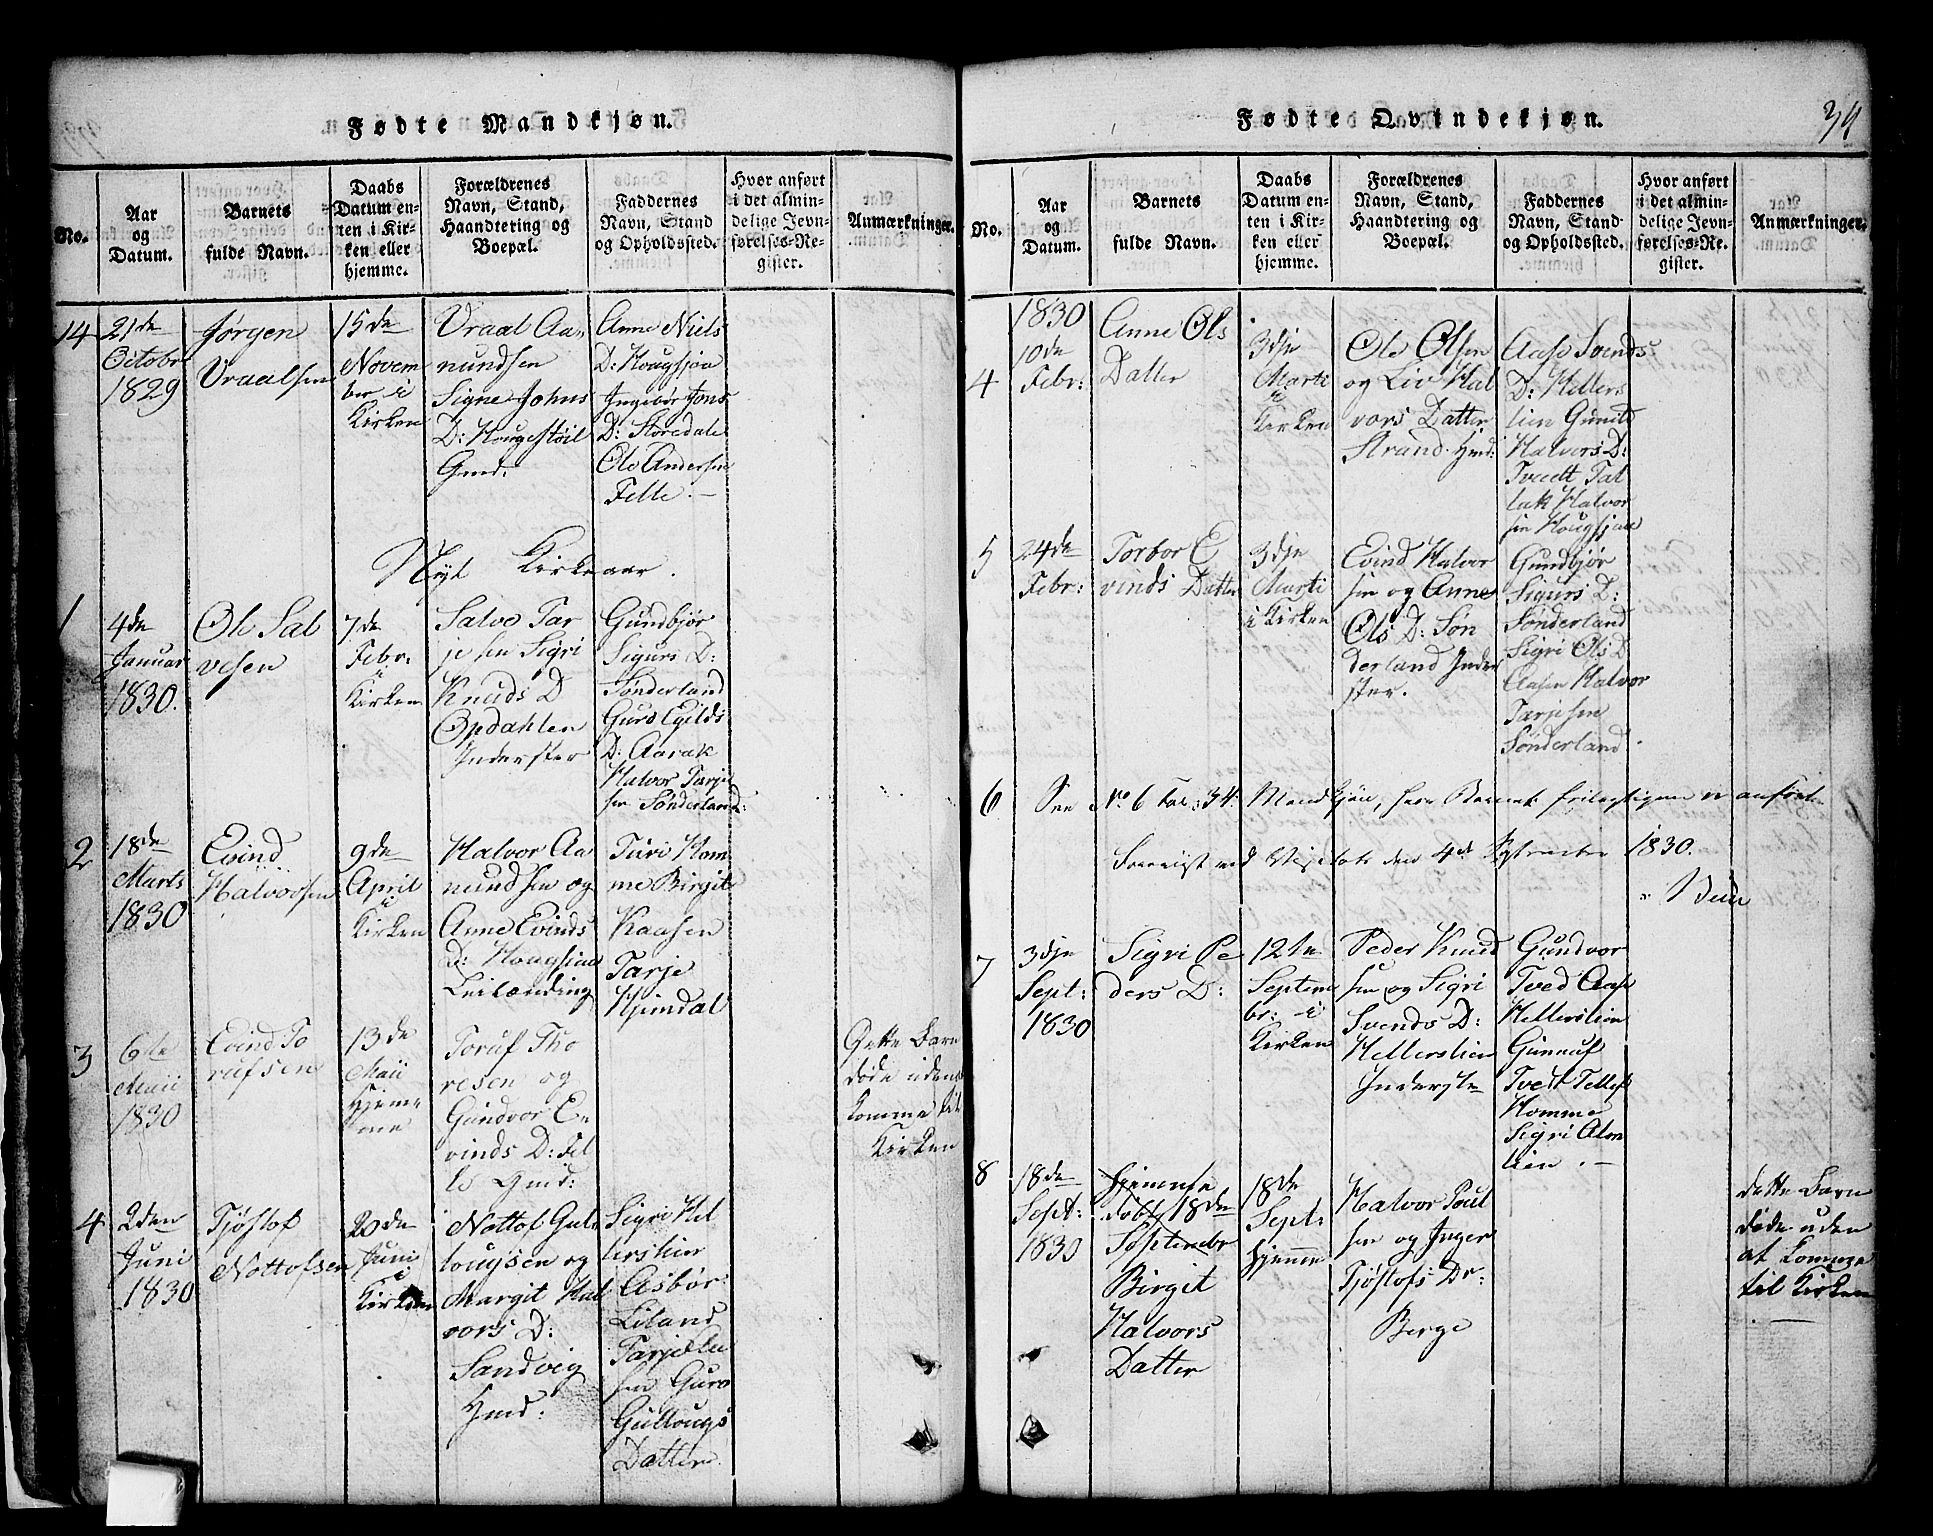 Fødte Mandkjøn.
No.
Aar
og
Datum.
Barnets
fulde Navn.
Daabs
Datum en-
ten i Kir-
ken eller
hjemme.
Forældrenes
Navn, Stand,
Haandtering og
Boepæl.
Faddernes
Navn, Stand
og Opholdssted.
Hvor anført
i det almin-
delige Jevn-
førelses-Re-
gister.
Anmærkninger.
14
21de
October
1829
Jørgen
Vraalsen
15de
Novem
ber i
Kirken
Vraal Aa-
nundsen
Signe Johns
D: Hougestøil
Gmd:
Anne Niels
D: Hougsjaa
Ingebor Jons
D: Storedale
Ole Andersen
Felle.-
Nyt Kirkeaar.
1
4de
Januar
1830.
Ole Sal
vesen
7de
Febr:
i
Kirken
Salve Tar
jesen Sigri
Knuds D
Opdahlen
Inderster
Gundbjør
Sigurs D:
Sønderland
Guro Egilds
D: Aarak
Halvor Tarje
sen Sønderland:
2
18de
Marts
1830
Evind
Halvorsen
9de
April
i
Kirken
Halvor Aa
nundsen og
Anne Evinds
D: Hougsjaa
Leilænding
Turi Hom
me Birgit
Kaasen
Tarje
Hjemdal
3
6te
Maii
1830
Evind To
rufsen
13de
Maii
Hjem
me
Toruf Tho
resen og
Gundvor E
vinds D: Fel
le Gmd:
Dette Barn
døde uden at
komme til
Kirken
4
2den
Juni
1830
Tjøstof
Nottofsen
20de
Juni
i
Kirken
Nottof Gul
lougsen og
Margit Hal
vors D:
Sandvig
Hmd:
Sigri Hel
lerslien
Asbør
Liland
Tarje
sen Guro
Gullougs
Datter.
Fødte Qvindekjøn.
34
No.
Aar
og
Datum.
Barnets
fulde Navn.
Daabs
Datum en-
ten i Kir-
ken eller
hjemme.
Forældrenes
Navn, Stand,
Haandtering og
Boepæl.
Faddernes
Navn, Stand
og Opholdssted.
Hvor anført
i det almin-
delige Jevn-
førelses-Re-
gister.
Anmærkninger.
4
1830
10de
Febr:
Anne Ols
Datter
3dje
Marti
i
Kirken
Ole Olsen
og Liv Hal
vors Datter
Strand. Hmd:
Aase Svends
D: Hellers
lien Gunild
Halvors D:
Tvedt Tal
lak Halvor
sen Hougsjaa
5
24de
Febr:
Torbor E
vinds Datter
3dje
Marti
i Kirken
Evind Halvor
sen og Anne
Ols D: Søn
derland Inder
ster.
Gundbjør
Sigurs D:
Sønderland
Sigri Ols D
Aasen Halvor
Tarjesen
Sønderland.
6
See No 6 Fol: 34. Mandkjøn, hvor Barnet feilagtigen er anført
Foreviist ved Visitats den 4de September 1830.
7
3dje
Sept:
1830
Sigri Pe
ders D:
12te
Septem
br: i
Kirken
Peder Knud
sen og Sigri
Svends D:
Hellerslien
Inderste
Gundvor
Tved Aase
Hellerslien
Gunnuf
Tvedt Tellef
Homme
Sigri Alm
lien.-
8
18de
Sept:
1830
hjemme
døbt 18de
Septembr
Birgit
Halvors
Datter
18de
Sept:
hjemme
Halvor Poul
sen og Inger
Tjøstofs D:
Berge
dette Barn
døde uden
at komme
til Kirken